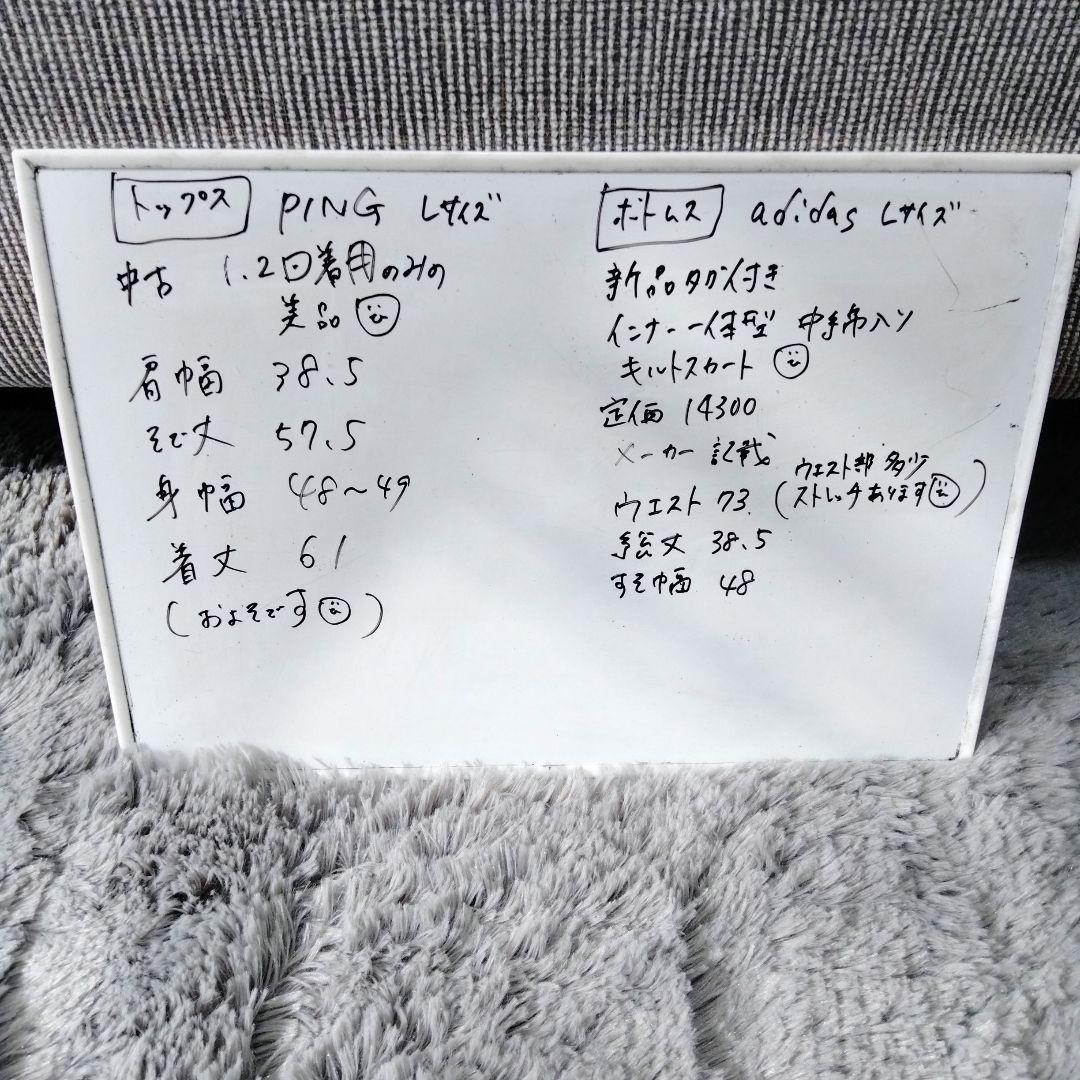 トップス PING Lサイズ
中古 1.2回着用のみの
美品
肩幅 38.5
そで丈 57.5
身幅 48〜49
着丈 61
(およそです)
ボトムス adidas Lサイズ
新品タグ付き
インナー一体型 中綿入り
キルトスカート
定価 14300
メーカー記載
ウエスト 73. (ウエスト部 多少
ストレッチあります)
総丈 38.5
すそ幅 48